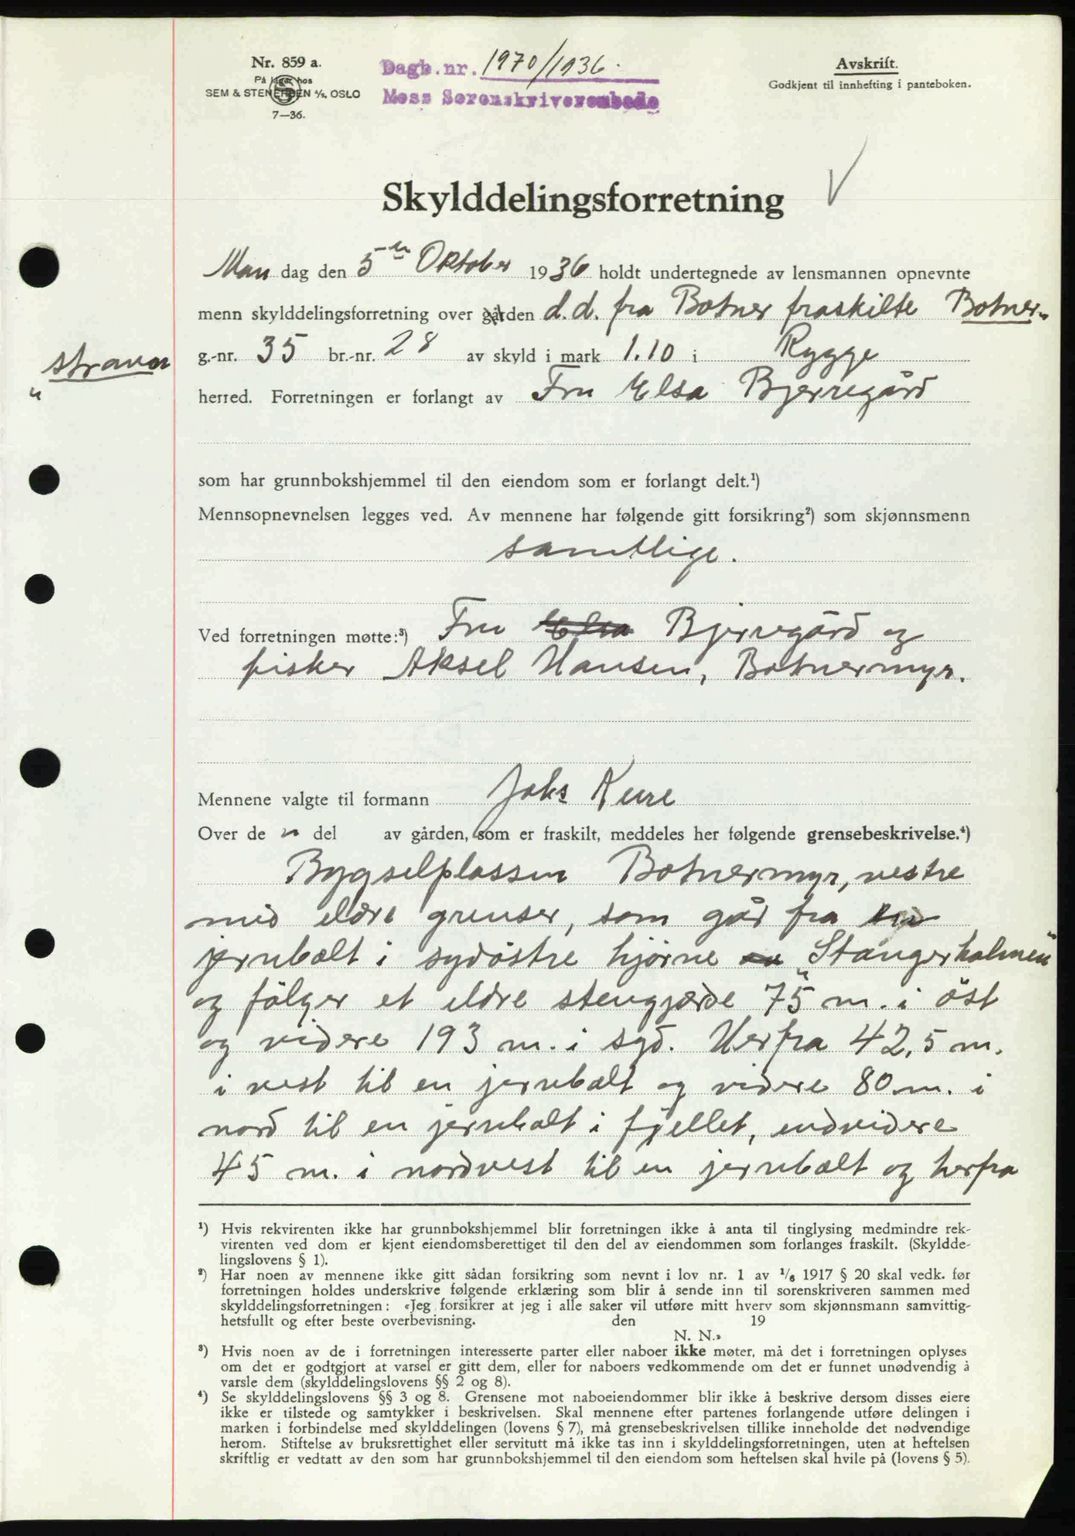 Nr. 859 a.
På lager hos
SEM & STENERSEN A/S, OSLO
7—36.
Dagb.nr. 1970/1936.
Moss Sorenskriverembede
Avskrift.
Godkjent til innhefting i panteboken.
Skylddelingsforretning
Man dag den 5te Oktober 1936 holdt undertegnede av lensmannen opnevnte
menn skylddelingsforretning over gården d.d. fra Botner fraskilte Botner-
stranda"
g.-nr. 35 br.-nr. 28 av skyld i mark 1.10 i Rygge
herred. Forretningen er forlangt av Fru Elsa Bjerregård
som har grunnbokshjemmel til den eiendom som er forlangt delt.¹)
Mennsopnevnelsen legges ved. Av mennene har følgende gitt forsikring²) som skjønnsmenn
samtlige.
Ved forretningen møtte:³) Fru Elsa Bjerregård og
fisker Aksel Hansen, Botnermyr.
Mennene valgte til formann Johs Kure
Over de n del av gården, som er fraskilt, meddeles her følgende grensebeskrivelse.⁴)
Bygselplassen Botnermyr, vestre
med eldre grenser, som går fra
jernbolt i sydøstre hjørne "Stangerholmen"
og følger et eldre stengjærde 75 m. i øst
og videre 193 m. i syd. Herfra 42,5 m.
i vest til en jernbolt og videre 80 m. i
nord til en jernbolt i fjellet, endvidere
45 m. i nordvest til en jernbolt og herfra
¹) Hvis rekvirenten ikke har grunnbokshjemmel blir forretningen ikke å anta til tinglysing medmindre rek-
virenten ved dom er kjent eiendomsberettiget til den del av eiendommen som forlanges fraskilt. (Skyldde-
lingslovens § 1).
²) Har noen av mennene ikke gitt sådan forsikring som nevnt i lov nr. 1 av ¹/₆ 1917 § 20 skal vedk. før
forretningen holdes underskrive følgende erklæring som blir å sende inn til sorenskriveren sammen med
skylddelingsforretningen: «Jeg forsikrer at jeg i alle saker vil utføre mitt hverv som skjønnsmann samvittig-
hetsfullt og efter beste overbevisning. den 19
N. N.»
³) Hvis noen av de i forretningen interesserte parter eller naboer ikke møter, må det i forretningen oplyses
om det er godtgjort at varsel er gitt dem, eller for naboers vedkommende om det er funnet unødvendig å
varsle dem (skylddelingslovens §§ 2 og 8).
⁴) Se skylddelingslovens §§ 3 og 8. Grensene mot naboeiendommer blir ikke å beskrive dersom disses eiere
ikke er tilstede og samtykker i beskrivelsen. Skal mennene efter partenes forlangende utføre delingen i
marken i forbindelse med skylddelingen (lovens § 7), må grensebeskrivelsen tillike inneholde det nødvendige
herom. Stiftelse av bruksrettighet eller servitutt må ikke tas inn i skylddelingsforretningen, uten at heftelsen
skriftlig er vedtatt av den som har grunnbokshjemmel til den eiendom som heftelsen skal hvile på (lovens § 5).